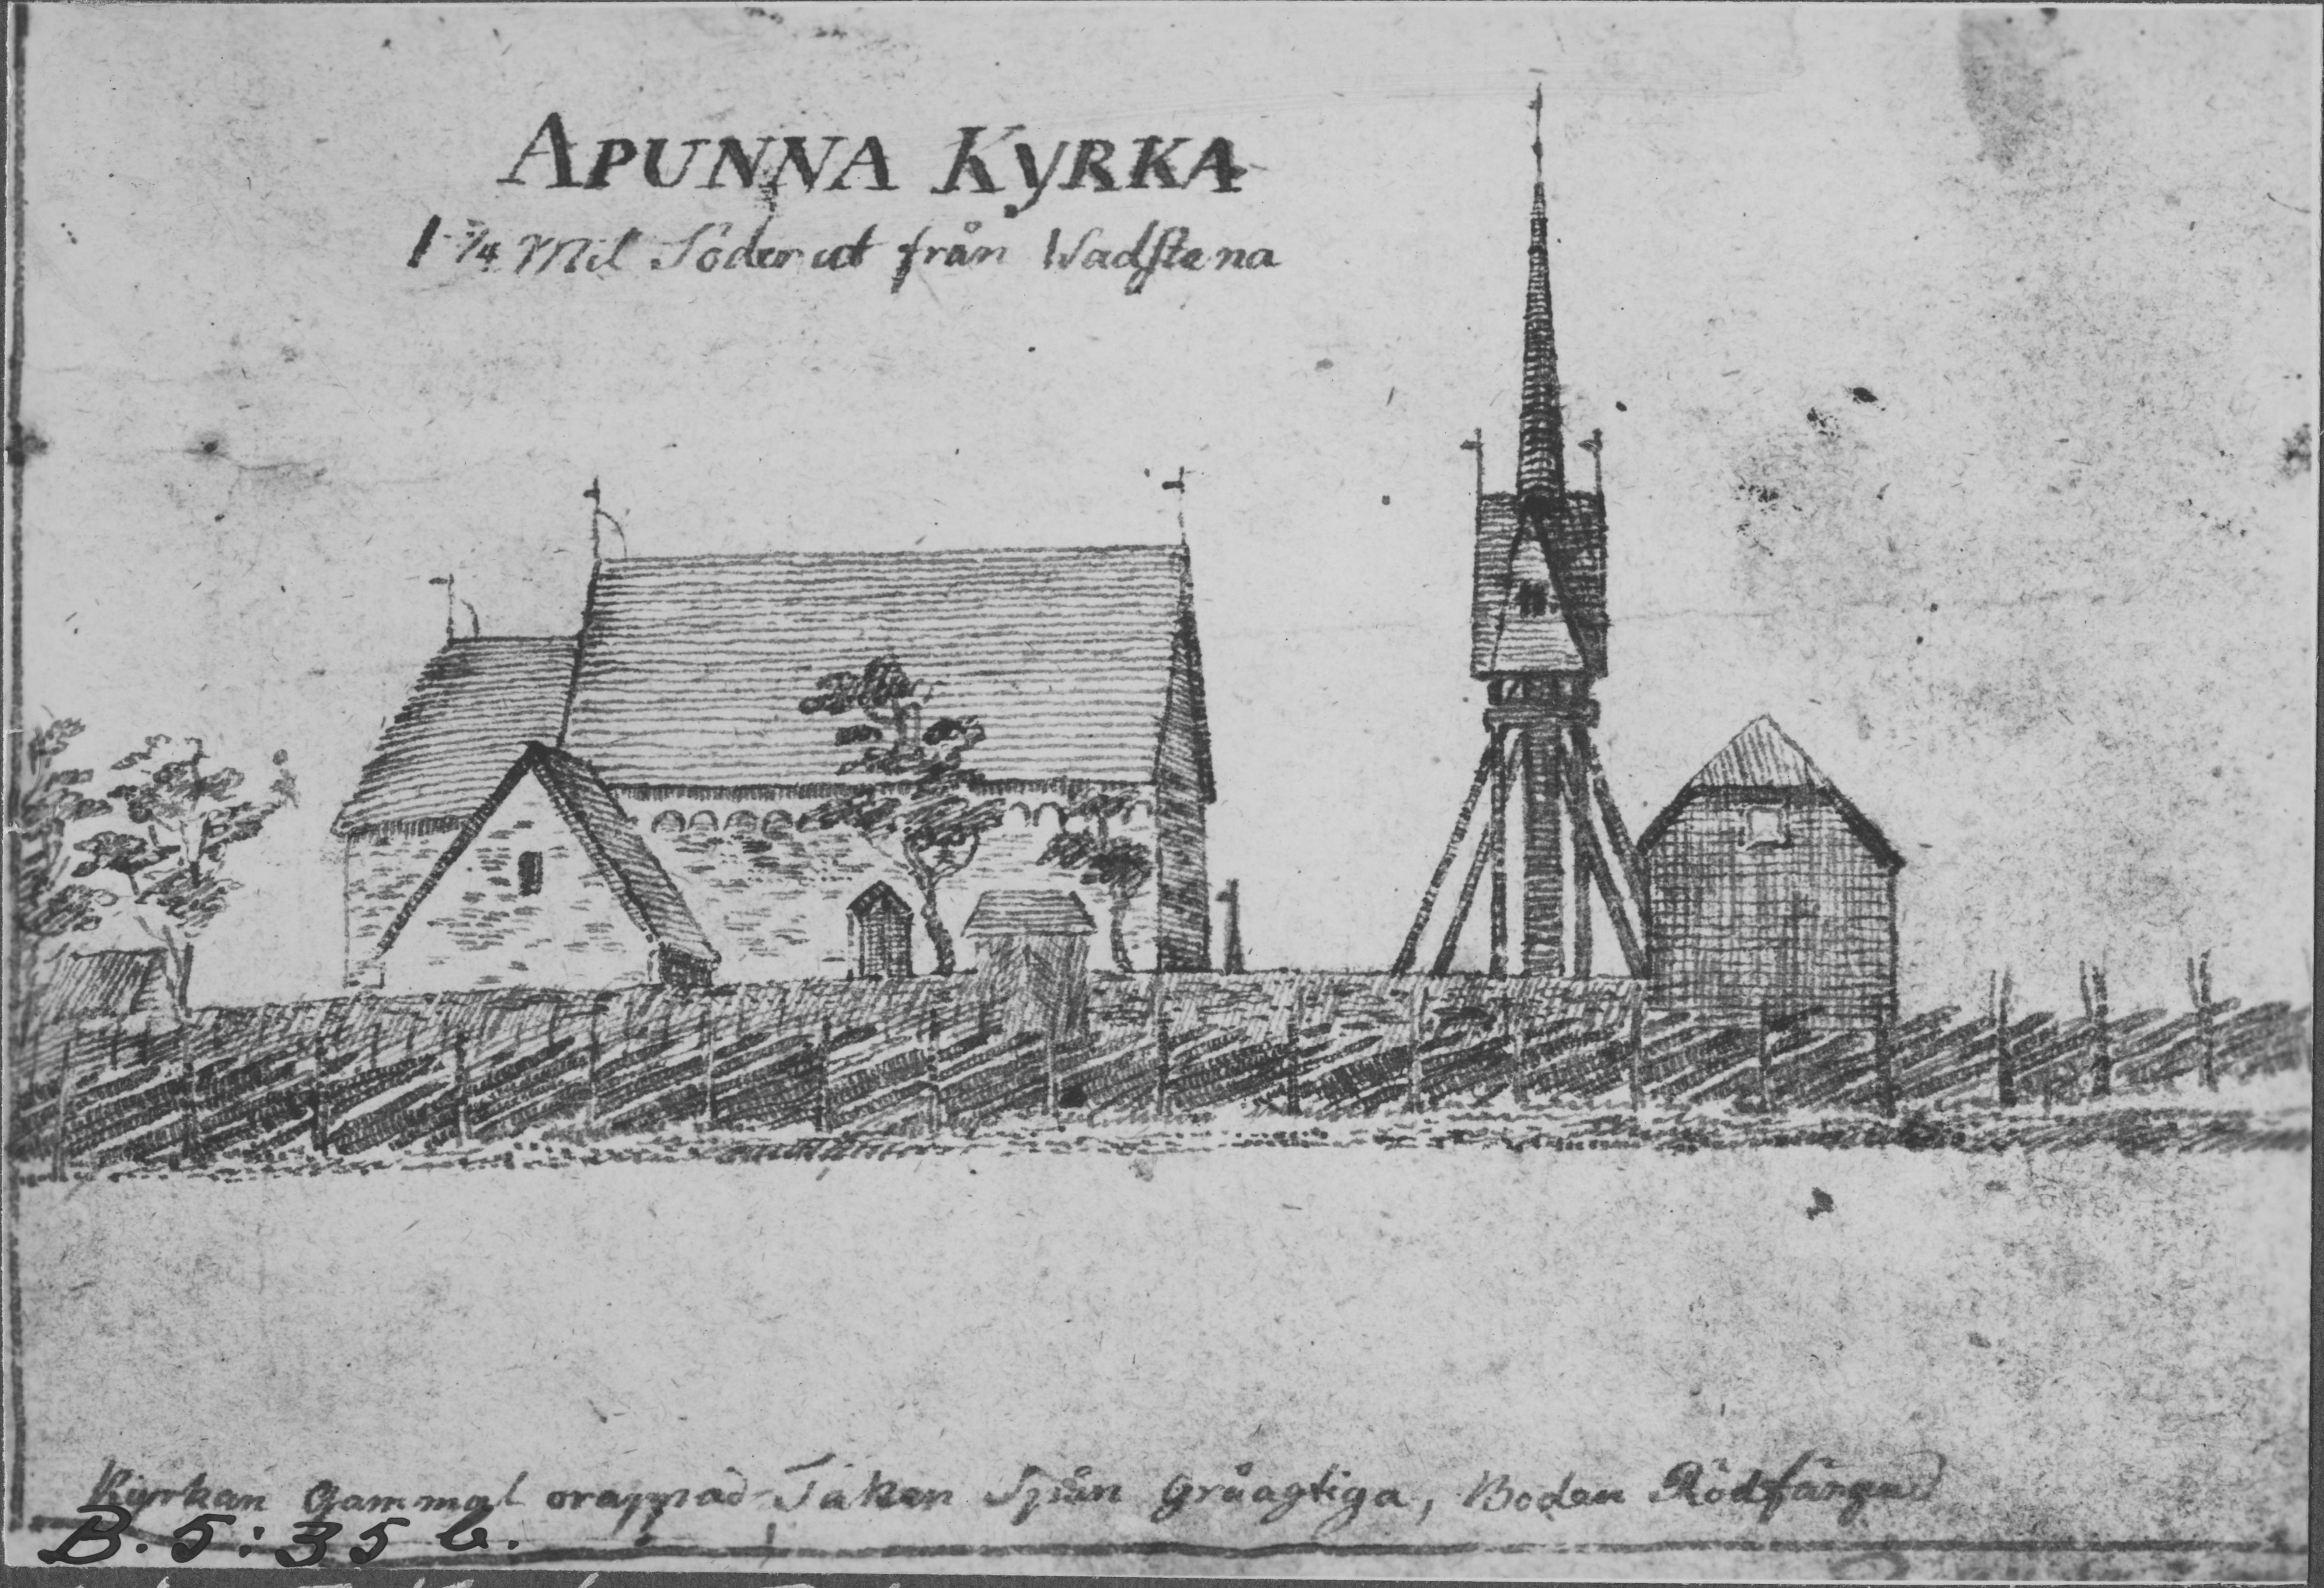 APUNNA KyRKA
1 3/4 Mil Söder ut från Wadstena
Kyrkan Gammal orappad Taken Spån Gråagtiga, Boden Rödfärgad
B. 5: 35 b.